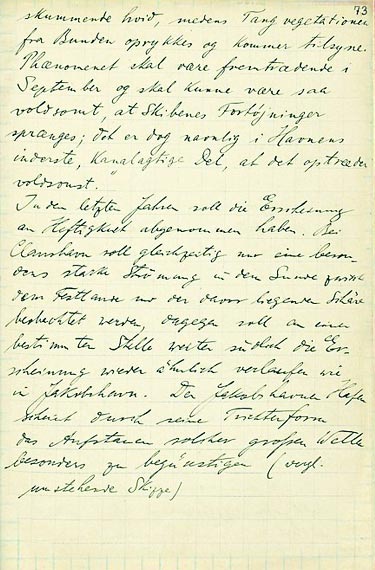 73
skummende hvid, medens Tangvegetationen
fra Bunden oprykkes og kommer tilsyne.
Phænomenet skal være fremtrædende i
September og skal kunne være saa
voldsomt, at Skibenes Fortøjninger
sprænges; det er dog navnlig i Havnens
inderste, kanalagtige Del, at det optræder
voldsomst."
In den letzten Jahren soll die Erscheinung
an Heftigkeit abgenommen haben. Bei
Claushavn soll gleichzeitig nur eine beson-
ders starke Strömung in dem Sunde zwischen
dem Festlande und der davor liegenden Schäre
beobachtet werden, dagegen soll an einer
bestimmten Stelle weiter südlich die Er-
scheinung wieder ähnlich verlaufen wie
in Jakobshavn. Der Jakobshavner Hafen
scheint durch seine Trichterform
das Aufstauen solcher großen Welle
besonders zu begünstigen (vergl.
umstehende Skizze)